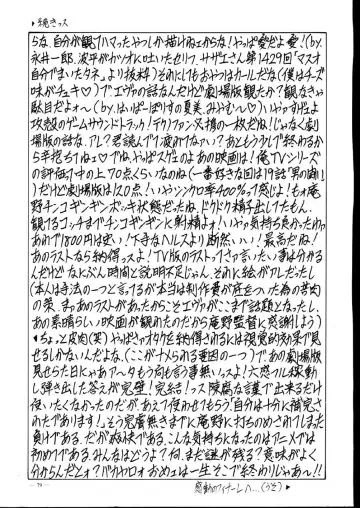 ちな、自分が観てハマったやつしか描けねェからな!やっぱ愛だよ愛!(by.
永井一郎。波平がカツオに吐いたセリフ。サザエさん第1429回「マスオ
自分でまいたタネ」より抜粋)それにしてもおやつはカールだな(僕はチーズ
味がチェキ♡)でエヴァの話なんだけど劇場版観たか?観なきゃ
駄目だよォ~。(by.はいぱーぽりすの夏美。みやむ〜♡)いやっすげェよ
攻殻のゲームサウンドトラック!テクノファン必携の一枚だね!じゃなく劇
場版の話な。アレ?君読んでて疲れてない?あともう少しで終わるか
ら辛抱してねェ♡でね、やっぱスゲェのよあの映画は!俺TVシリーズ
の評価が中の上70点くらいなのね(一番好きな回は19話「男の戦い」)
だけど劇場版は120点!いやシンクロ率400%って感じよ!もォ庵
野チンコギンギンボッキ状態だったね。ドクドク精子出してたもん。
観てるコッチまでチンコギンギンに射精よォ!いやっ気持ち良かったわっ
あれで1800円は安い!下手なヘルスより断然いい!最高だね!
あのラストなら納得っスよ!TV版のラストってさァ言いたい事は分かる
んだけどなにぶん時間と説明不足じゃん。それに絵がアレだったし
(本人は手法の一つと言ってるが本当は制作費が底をついた為の苦肉
の策。まっあのラストがあったからこそエヴァがここまで話題となったし、
あの素晴らしい映画が観れたのだから庵野監督に感謝しよう)
・ちょっと皮肉(笑)やっぱさァオタクを納得させるには視覚的効果で見
せるしかないんだよな。(ここがナメられる要因の一つ)であの劇場版
見せられた日にゃあアータもう何も言う事無いっスよ!六感フル稼動
し弾き出した答えが完璧!完結!っス陳腐な言葉で出来るだけ
使いたくなかったのだが、あえて使わせてもらう。自分は十分に補完さ
れたであります!そう完膚無きまでに庵野に打ちのめされてしまった
負けである。だが爽快である。こんな気持ちになったのはアニメでは
初めてである。みんなはどうよ?何。まだ謎が残る?意味がよく
分からんだとォ?バカヤロォおめェは一生そこで終わりじゃあ〜!!
感動のフィナーレ八…(うそ)